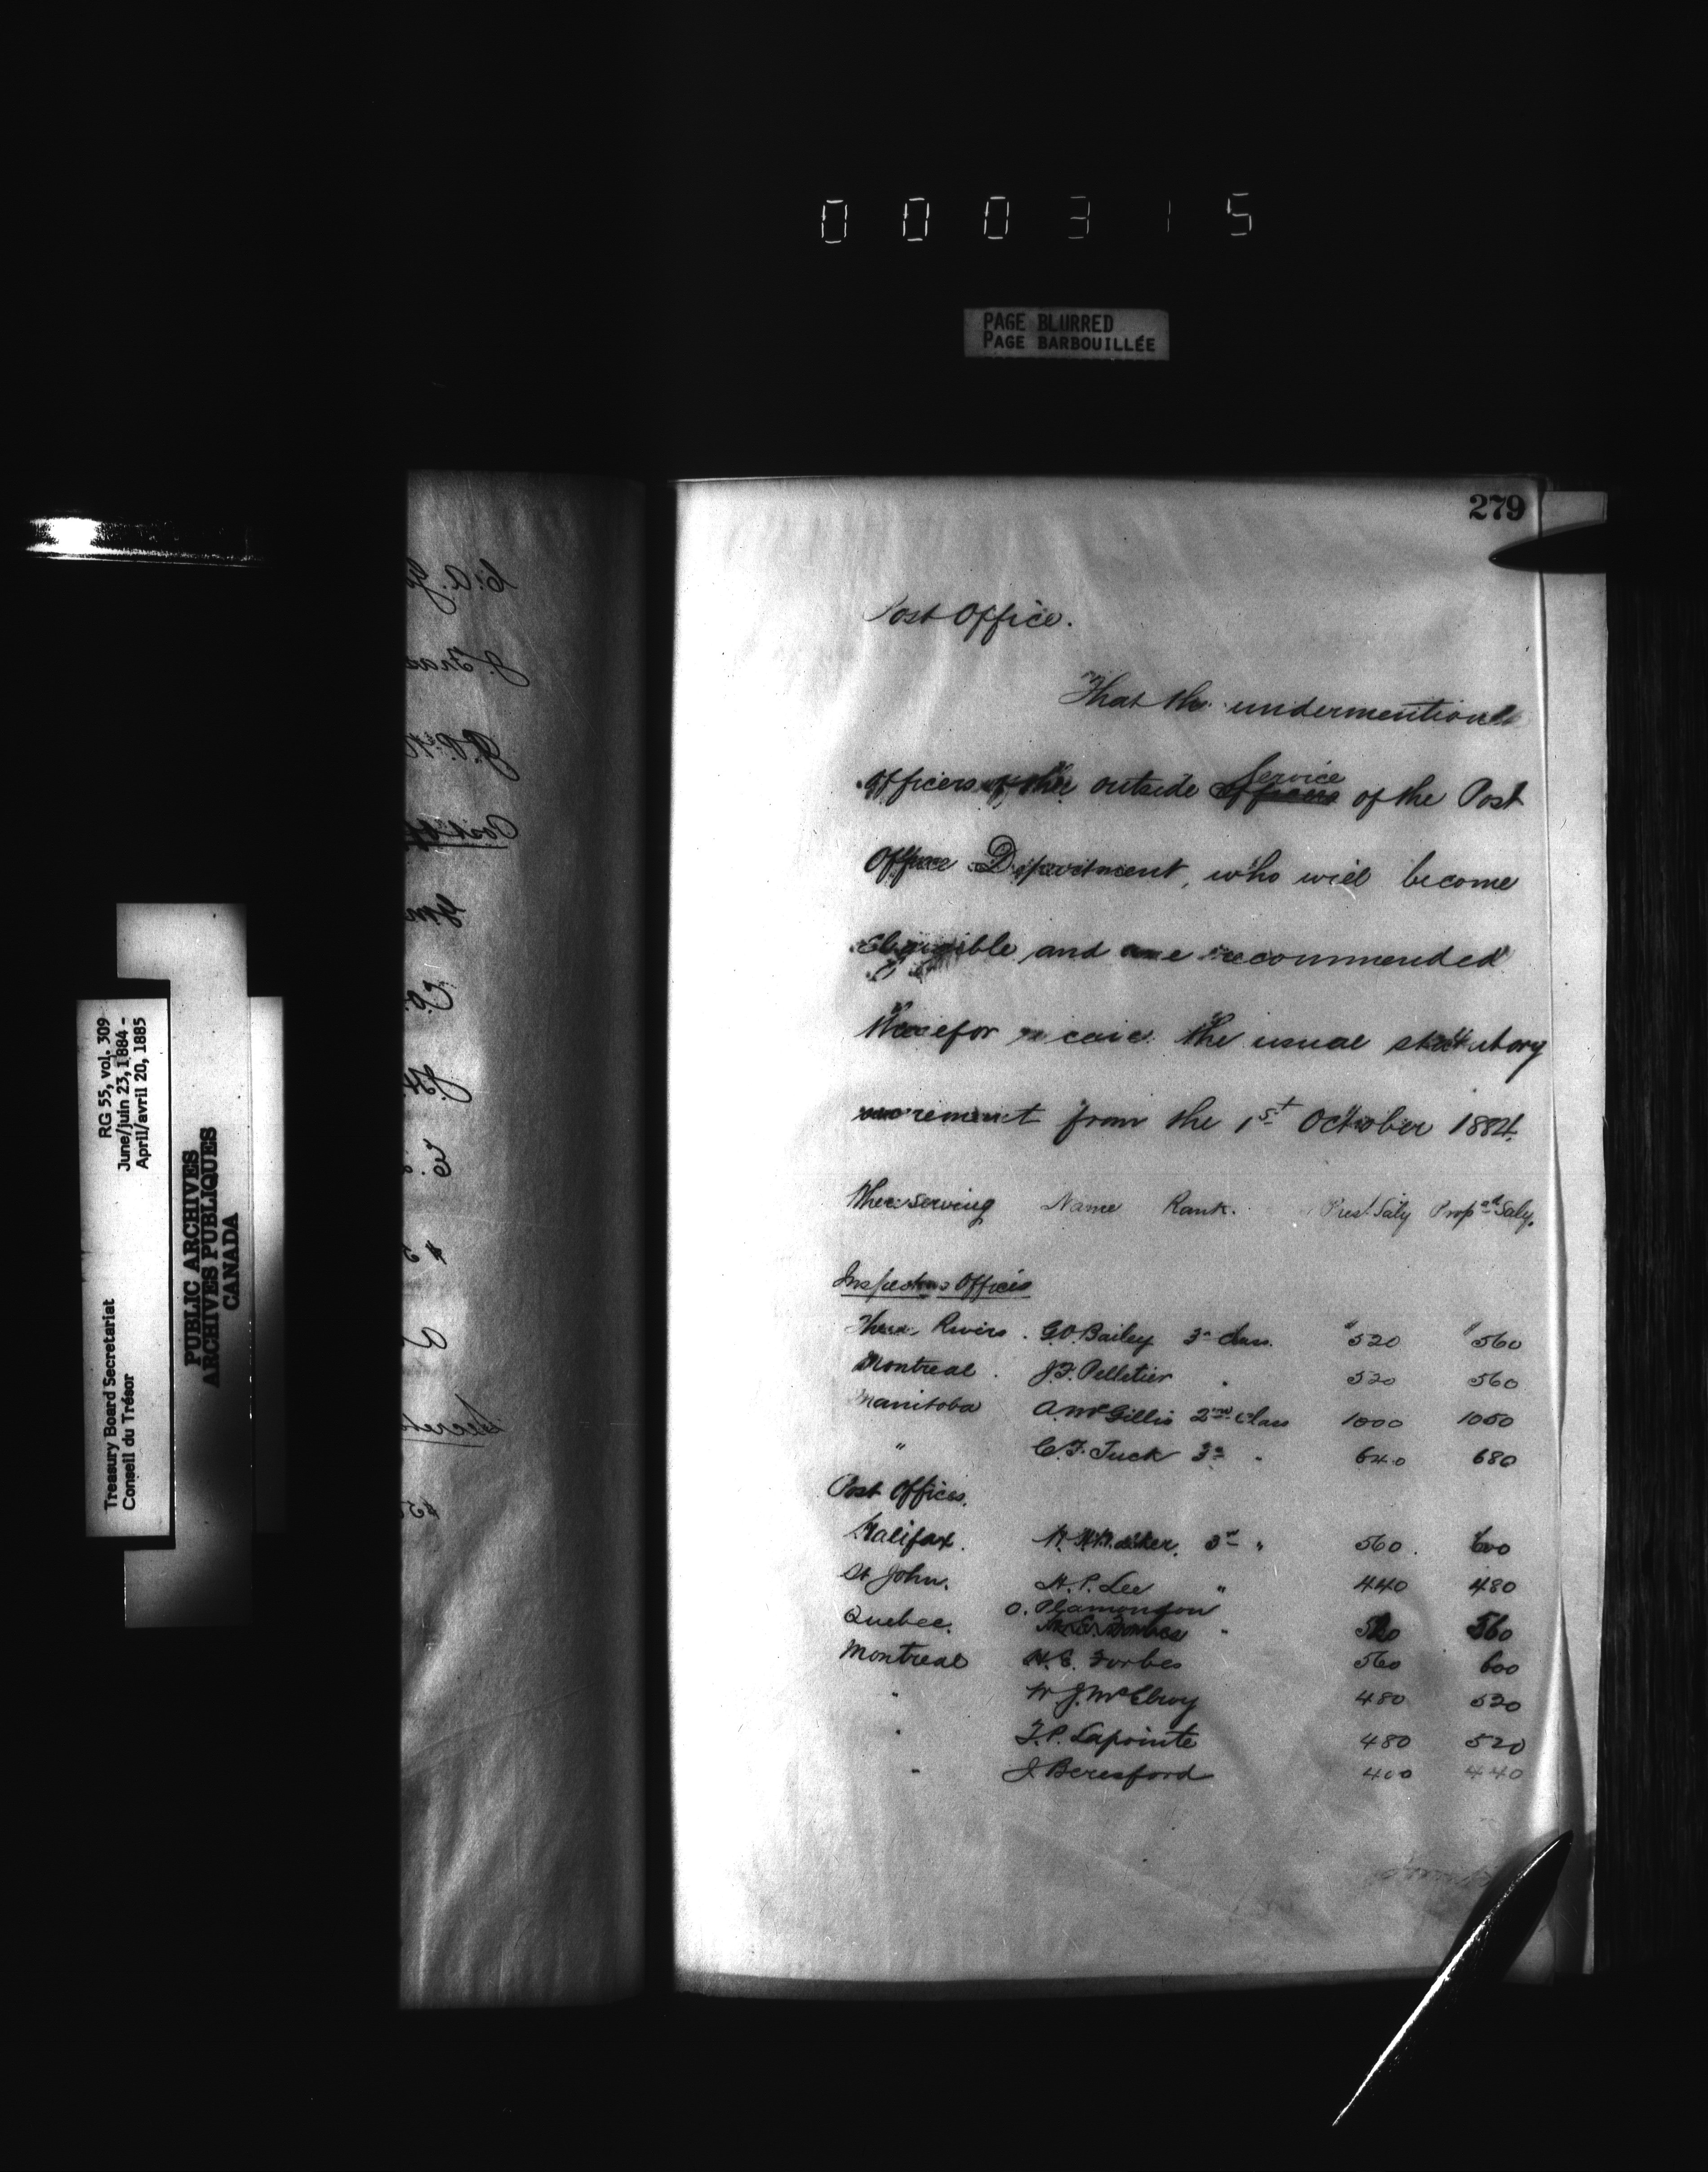 000315
PAGE BLURRED
PAGE BARBOUILLÉE
RG 55, vol. 309
June/juin 23, 1884 -
April/avril 20, 1885
Treasury Board Secretariat
Conseil du Trésor
PUBLIC ARCHIVES
ARCHIVES PUBLIQUES
CANADA
279
Post Office.
That the undermentioned
officers of the outside Service of the Post
Office Department, who will become
eligible and are recommended
therefor receive the usual statutory
increment from the 1st October 1884.
Where serving Name Rank. Prest Saly Proped Saly.
Inspectors Offices
Three Rivers . G.O. Bailey 3d Class. " 520 " 560
Montreal . J.F. Pelletier " 520 560
Manitoba A. McGillis 2nd Class 1000 1050
" C.F. Tuck 3d " 640 680
Post Offices.
Halifax. 3d " 560. 600
St John. H.P. Lee " 440 480
Quebec. O. Plamondon " 520 560
Montreal H.E. Forbes 560 600
" W.J. McElroy 480 520
" T.P. Lapointe 480 520
" J. Beresford 400 440